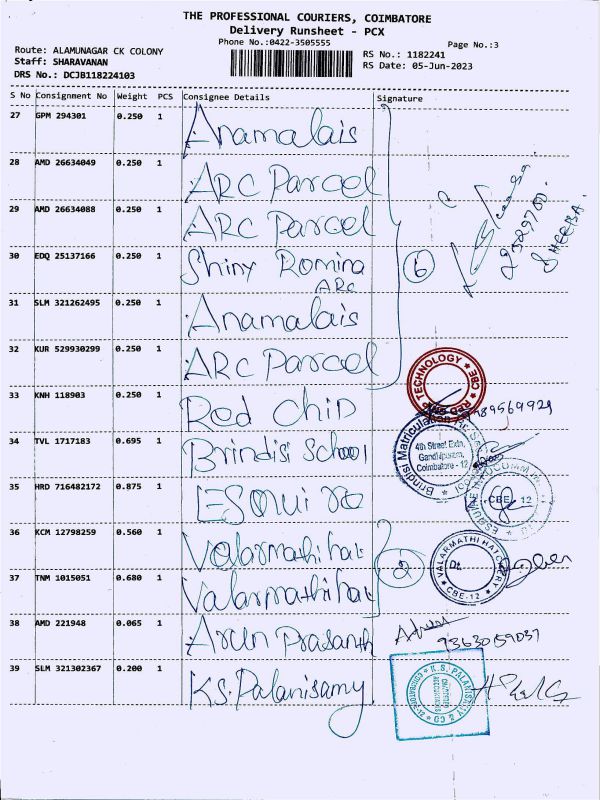 THE PROFESSIONAL COURIERS, COIMBATORE
Delivery Runsheet - PCX
Phone No.:0422-3505555
Page No.:3
Route: ALAMUNAGAR CK COLONY
RS No.: 1182241
Staff: SHARAVANAN
RS Date: 05-Jun-2023
DRS No.: DCJB118224103
S No Consignment No Weight PCS Consignee Details Signature
27 GPM 294301 0.250 1 Anamalais
28 AMD 26634049 0.250 1 ARC Parcel
29 AMD 26634088 0.250 1 ARC Parcel
30 EDQ 25137166 0.250 1 Shiny Romina
ARC
6
SHEEBA.
31 SLM 321262495 0.250 1 Anamalais
32 KUR 529930299 0.250 1 ARC Parcel
33 KNH 118903 0.250 1 Red Chip
TECHNOLOGY ★ CBE ★ RED
34 TVL 1717183 0.695 1 Brindisi School
Brindisi Matriculation
4th Street Extn,
Gandhipuram,
Coimbatore - 12
35 HRD 716482172 0.875 1 ESquire
CBE 12
36 KCM 12798259 0.560 1 Valarmathi hat
37 TNM 1015051 0.680 1 Valarmathi hat
2
VALARMATHI HATCHERY
★ CBE-12 ★
38 AMD 221948 0.065 1 Arun Prasanth
9363059037
39 SLM 321302367 0.200 1 K.S. Palanisamy
K.S. PALANISAMY & CO
CHARTERED
ACCOUNTANTS
COIMBATORE-12